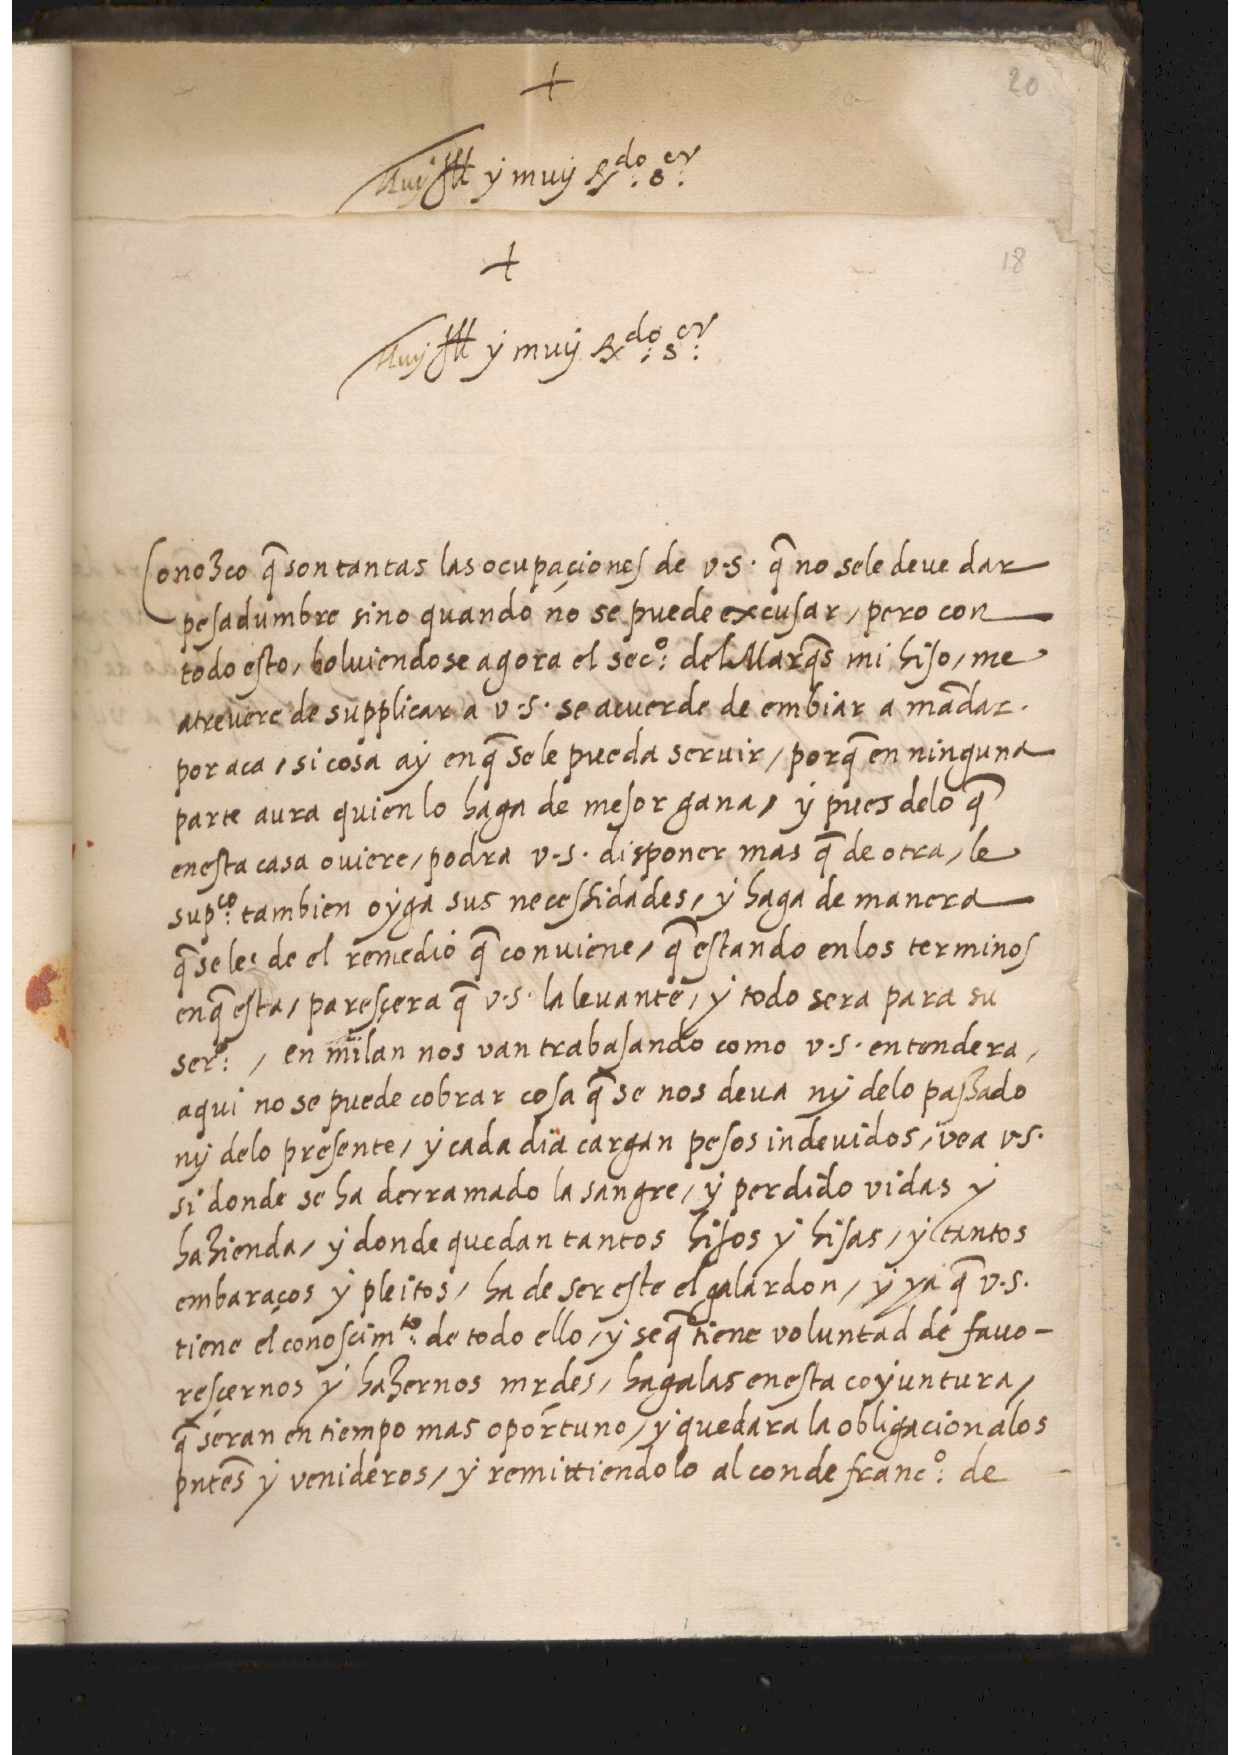 20
+
Muy Ill y muy Rdo: sor:
18
+
Muy Ill y muy Rdo: sor:
Conozco q̃ son tantas las ocupaciones de v.s. q̃ no sele deue dar
pesadumbre sino quando no se puede excusar, pero con
todo esto, boluiendose agora el secº: del Marq̃s mi hijo, me
atreuere de supplicar a v.s. se acuerde de embiar a mãdar.
por aca, si cosa ay enq̃ sele pueda seruir, porq̃ en ninguna
parte aura quien lo haga de mejor gana, y pues delo q̃
enesta casa ouiere, podra v.s. disponer mas q̃ de otra, le
supco: tambien oyga sus necessidades, y haga de manera
q̃ seles de el remedio q̃ conuiene, q̃ estando enlos terminos
enq̃ esta, paresçera q̃ v.s. la leuante, y todo sera para su
serº: , en milan nos van trabajando como v.s. entendera,
aqui no se puede cobrar cosa q̃ se nos deua ny delo passado
ny delo presente, y cada dia cargan pesos indeuidos, vea v.s.
si donde se ha derramado la sangre, y perdido vidas y
hazienda, y donde quedan tantos hijos y hijas, y tantos
embaraços y pleitos, ha de ser este el galardon, y ya q̃ v.s.
tiene el conoscimto: de todo ello, y se q̃ tiene voluntad de fauo-
resçernos y hazernos mrdes, hagalas enesta coyuntura,
q̃ seran en tiempo mas oportuno, y quedara la obligacion alos
pntes y venideros, y remittiendolo al conde francº: de